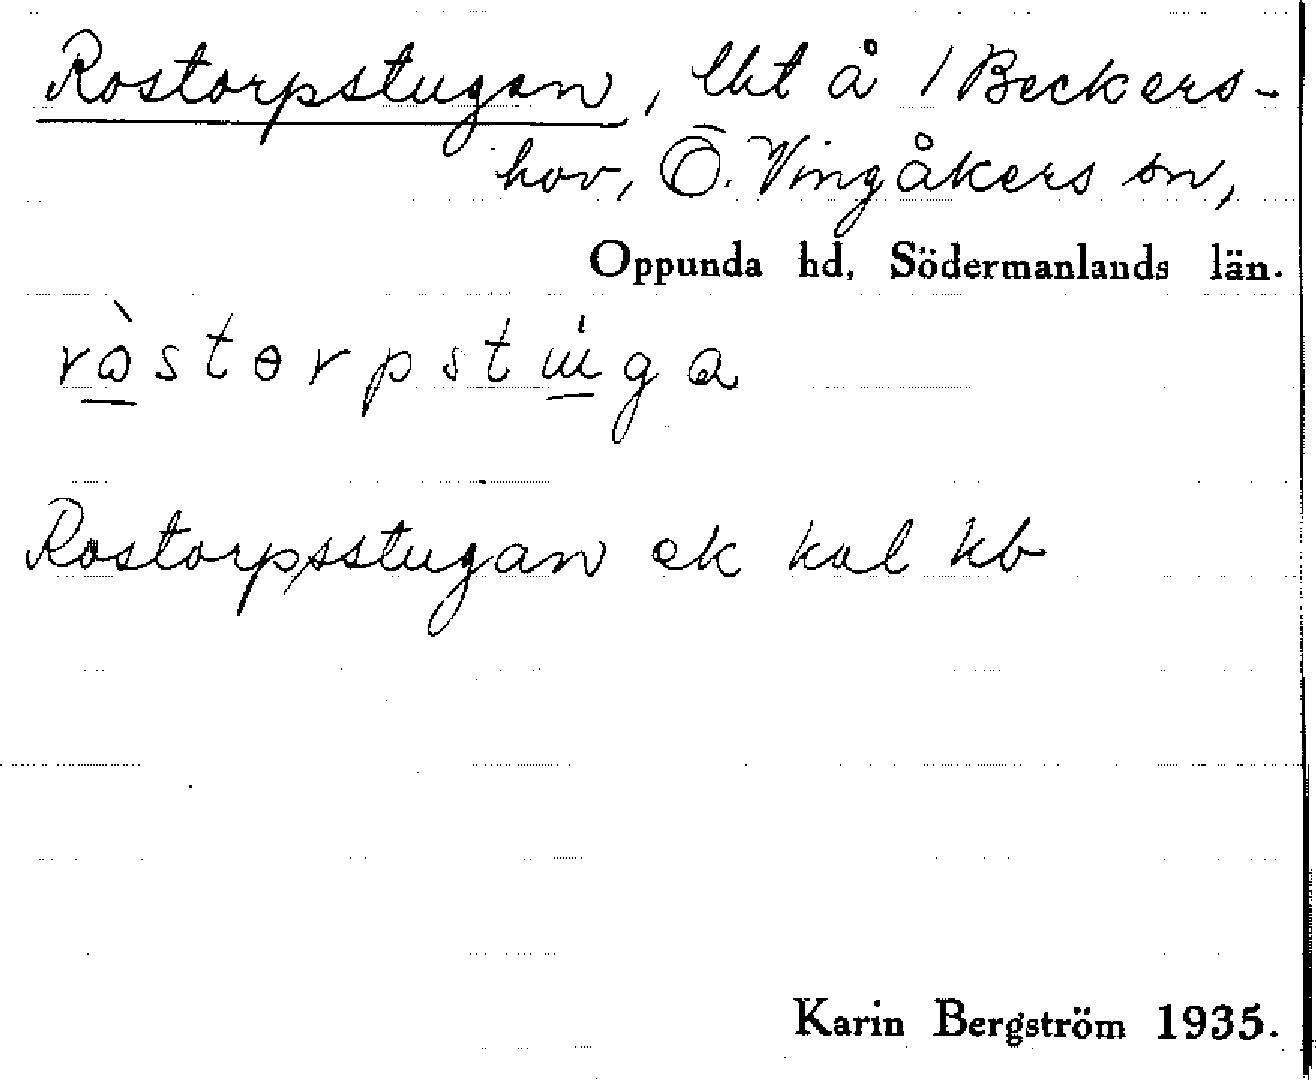 Rostorpstugan, lht å 1 Beckers-
hov, Ö. Vingåkers sn,
Oppunda hd, Södermanlands län.
ròstɵrpstɯ́ga
Rostorpsstugan ek kal kb
Karin Bergström 1935.